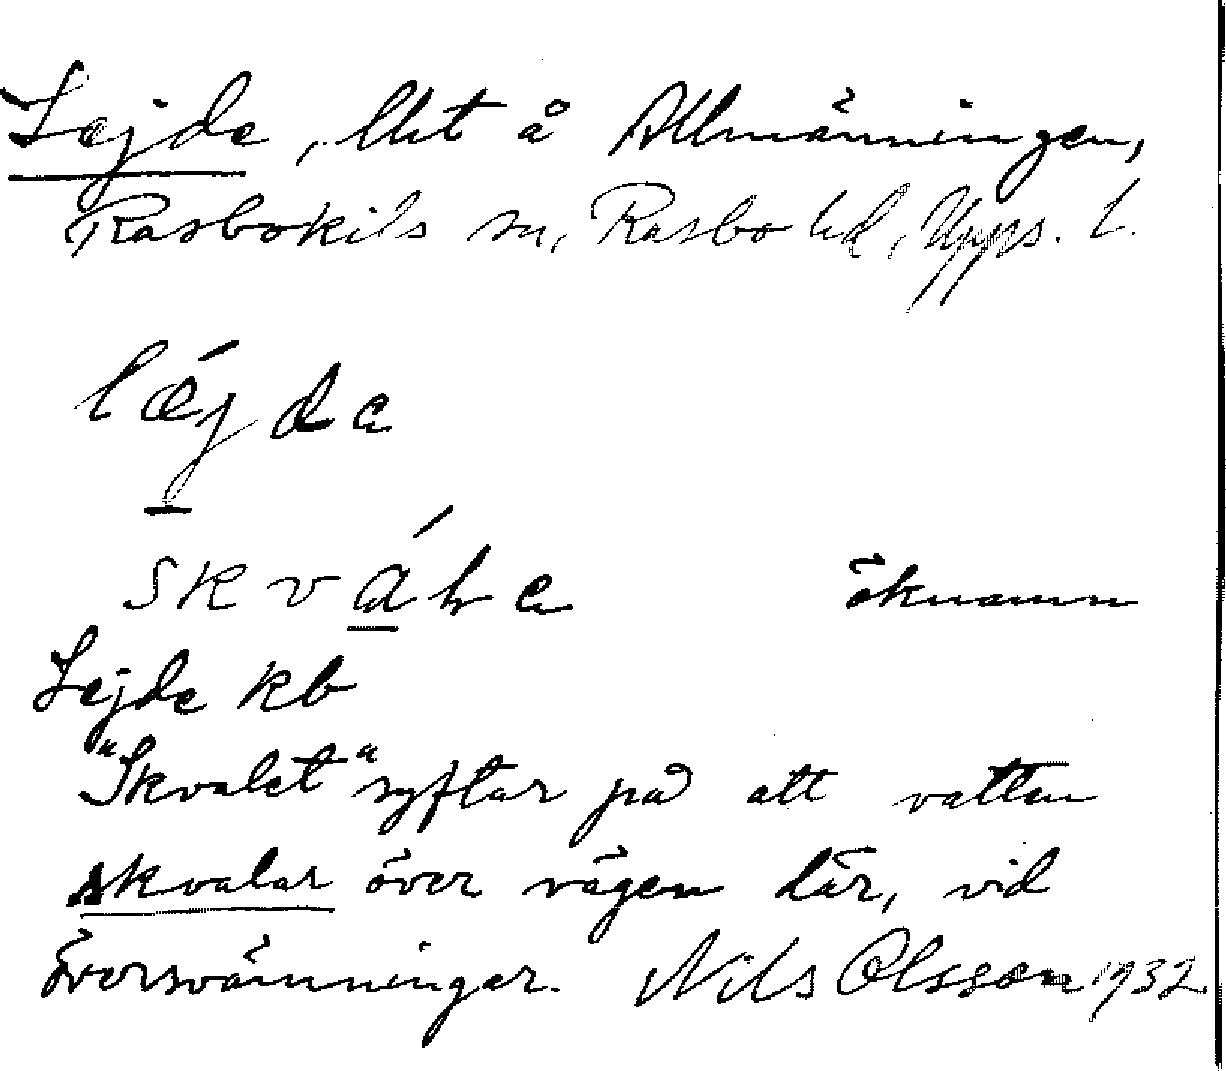 Lejde, lht å Allmänningen,
Rasbokils sn, Rasbo hd, Upps. l.
læ´jda
skvá̱la öknamn
Lejde kb
"Skvalet" syftar på att vatten
skvalar över vägen där, vid
översvämningar. Nils Olsson 1932